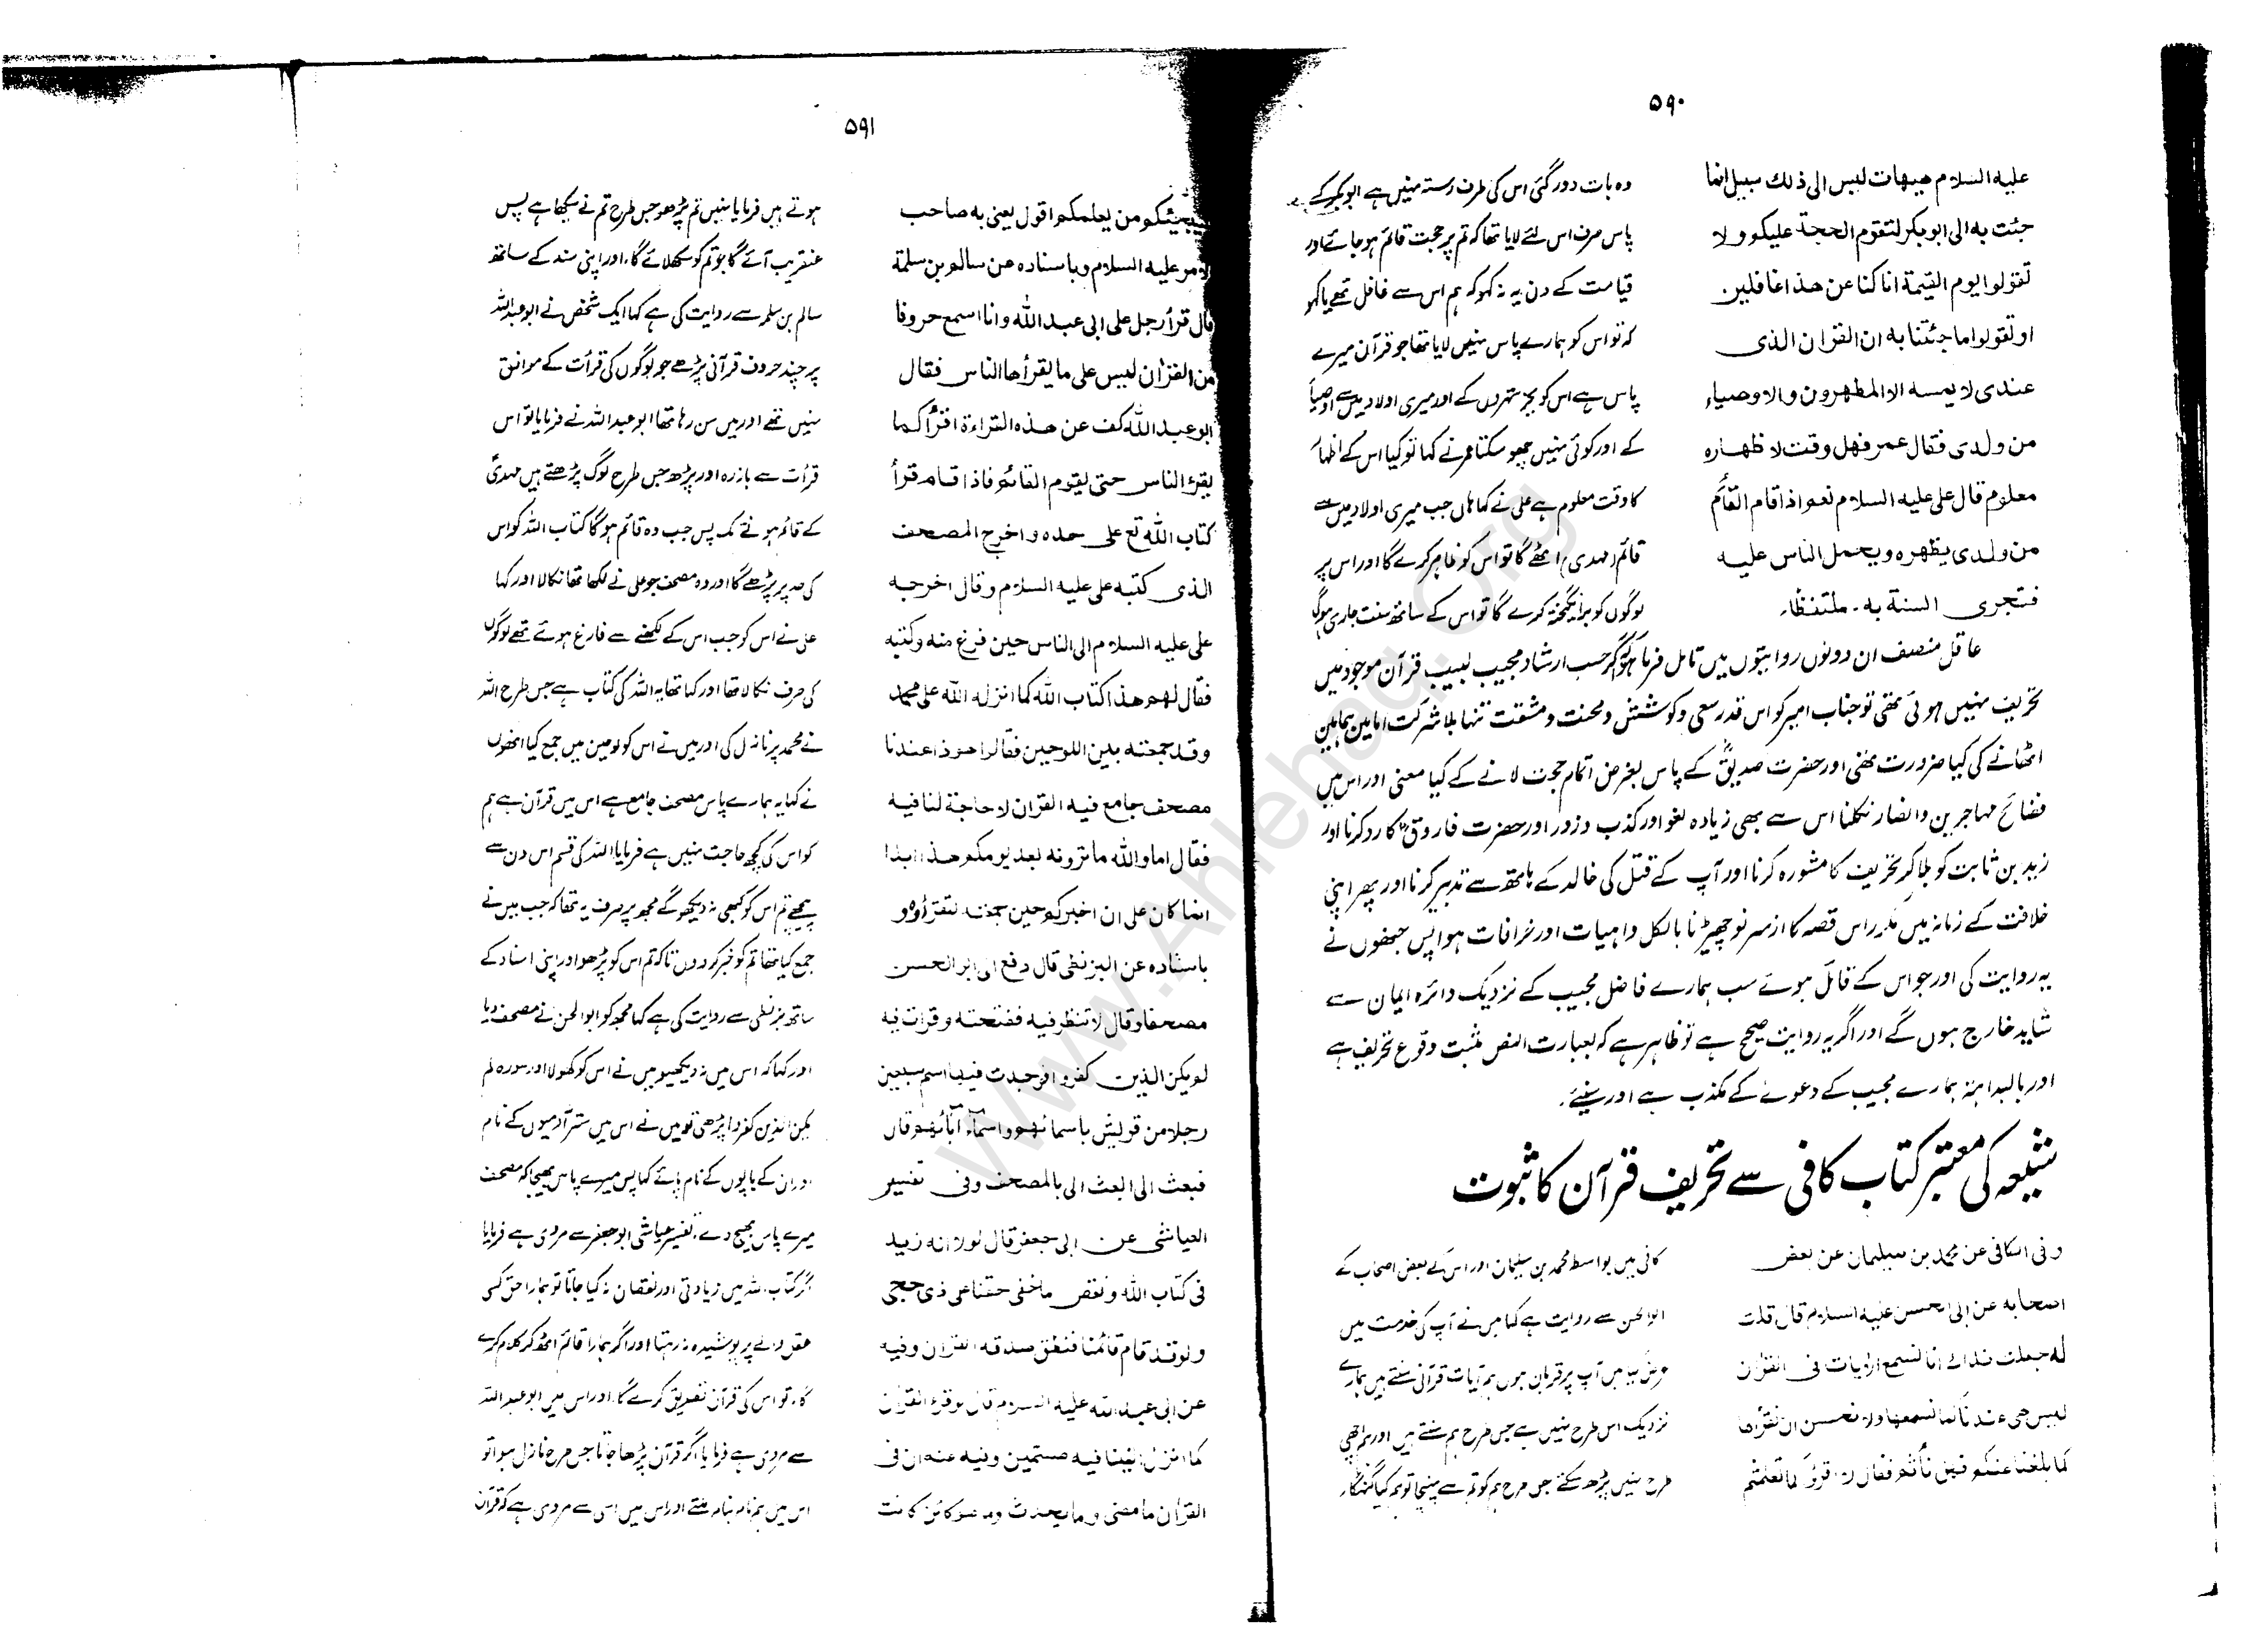 ۵۹۰
علیه السلام هیهات لیس الی ذلك سبیل انما
جئت به الی ابوبکر لتقوم الحجة علیکم ولا
تقولوا یوم القیمة انا کنا عن هذا غافلین
او تقولوا ما جئتنا به ان القران الذی
عندی لا یمسه الا المطهرون والاوصیاء
من ولدی فقال عمر فهل وقت لاظهاره
معلوم قال علی علیه السلام نعم اذا قام القائم
من ولدی یظهره ویحمل الناس علیه
فتجری السنة به ـ ملتقطاً ـ
وہ بات دور گئی اس کی طرف رستہ نہیں ہے ابوبکر کے
پاس صرف اس لئے لایا تھا کہ تم پر حجت قائم ہو جائے اور
قیامت کے دن یہ نہ کہو کہ ہم اس سے غافل تھے یا کہو
کہ تو اس کو ہمارے پاس نہیں لایا تھا جو قرآن میرے
پاس ہے اس کو بجز ستہروں کے اور میری اولاد میں سے اوصیأ
کے اور کوئی نہیں چھو سکتا عمر نے کہا تو کیا اس کے اظہار
کا وقت معلوم ہے علی نے کہا ہاں جب میری اولاد میں سے
قائم (مہدی) اٹھے گا تو اس کو ظاہر کرے گا اور اس پر
لوگوں کو برانگیختہ کرے گا تو اس کے ساتھ سنت جاری ہوگی
عاقل منصف ان دونوں روایتوں میں تامل فرما کر اگر حسب ارشاد مجیب لبیب قرآن موجود میں
تحریف نہیں ہوئی تھی تو جناب امیر کو اس قدر سعی و کوشش و محنت و مشقت تنہا بلا شرکت امامین ہمامین
اٹھانے کی کیا ضرورت تھی اور حضرت صدیقؓ کے پاس بغرض اتمام حجت لانے کے کیا معنی اور اس میں
فضائح مہاجرین و انصار نکلنا اس سے بھی زیادہ لغو اور کذب و زور اور حضرت فاروقؓ کا رد کرنا اور
زید بن ثابت کو بلا کر تحریف کا مشورہ کرنا اور آپ کے قتل کی خالد کے ہاتھ سے تدبیر کرنا اور پھر اپنی
خلافت کے زمانہ میں مکرر اس قصہ کا ازسرنو چھیڑنا بالکل واہیات اور خرافات ہوا پس جنھوں نے
یہ روایت کی اور جو اس کے قائل ہوئے سب ہمارے فاضل مجیب کے نزدیک دائرہ ایمان سے
شاید خارج ہوں گے اور اگر یہ روایت صحیح ہے تو ظاہر ہے کہ بعبارت النص مثبت وقوع تحریف ہے
اور بالبداہتہ ہمارے مجیب کے دعوے کے مکذب ہے اور سنیئے۔
شیعہ کی معتبر کتاب کافی سے تحریف قرآن کا ثبوت
وفی الکافی عن محمد بن سلیمان عن بعض
اصحابه عن ابی الحسن علیه السلام قال قلت
له جعلت فداك انا نسمع الایات فی القران
لیس هی عندنا کما نسمعها ولا نحسن ان نقرأها
کما بلغنا عنکم فهل نأثم فقال لا اقرؤا کما تعلمتم
کافی میں بواسطہ محمد بن سلیمان اور اس کے بعض اصحاب کے
ابوالحسن سے روایت ہے کہا میں نے آپ کی خدمت میں
عرض کیا میں آپ پر قربان ہوں ہم آیات قرآنی سنتے ہیں ہمارے
نزدیک اس طرح نہیں ہے جس طرح ہم سنتے ہیں اور ہم اچھی
طرح نہیں پڑھ سکتے جس طرح ہم کو تم سے پہنچا تو ہم کیا گنہگار
۵۹۱
فسیجیئکم من یعلمکم اقول یعنی به صاحب
الامر علیه السلام وباسناده عن سالم بن سلمة
قال قرأ رجل علی ابی عبد الله وانا اسمع حروفا
من القران لیس علی ما یقرأها الناس فقال
ابو عبد الله کف عن هذه القراءة اقرأ کما
یقرئ الناس حتی یقوم القائم فاذا قام قرأ
کتاب الله تع علی حده واخرج المصحف
الذی کتبه علی علیه السلام وقال اخرجه
علی علیه السلام الی الناس حین فرغ منه وکتبه
فقال لهم هذا کتاب الله کما انزله الله علی محمد
وقد جمعته بین اللوحین فقالوا هو ذا عندنا
مصحف جامع فیه القران لا حاجة لنا فیه
فقال اما والله ما ترونه بعد یومکم هذا ابدا
انما کان علی ان اخبرکم حین جمعته لتقرأوه و
باسناده عن البزنطی قال دفع الی ابو الحسن
مصحفا وقال لا تنظر فیه ففتحته وقرات فیه
لم یکن الذین کفروا فوجدت فیها اسم سبعین
رجلا من قریش باسمائهم واسماء آبائهم قال
فبعث الی ابعث الی بالمصحف وفی تفسیر
العیاشی عن ابی جعفر قال لولا انه زید
فی کتاب الله ونقص ما خفی حقنا علی ذی حجی
ولو قد قام قائمنا فنطق صدقه القران وفیه
عن ابی عبد الله علیه السلام قال لو قرئ القران
کما انزل الفینا فیه مسمین وفیه عنه ان فی
القران ما مضی وما یحدث وما هو کائن کانت
ہوتے ہیں فرمایا نہیں تم پڑھو جس طرح تم نے سیکھا ہے پس
عنقریب آئے گا جو تم کو سکھلائے گا، اور اپنی سند کے ساتھ
سالم بن سلمہ سے روایت کی ہے کہا ایک شخص نے ابوعبداللہ
پر چند حروف قرآنی پڑھے جو لوگوں کی قرأت کے موافق
نہیں تھے اور میں سن رہا تھا ابو عبداللہ نے فرمایا تو اس
قرأت سے باز رہ اور پڑھ جس طرح لوگ پڑھتے ہیں مہدی
کے قائم ہونے تک پس جب وہ قائم ہو گا کتاب اللہ کو اس
کی حد پر پڑھے گا اور وہ مصحف جو علی نے لکھا تھا نکالا اور کہا
علی نے اس کو جب اس کے لکھنے سے فارغ ہوئے تھے لوگوں
کی طرف نکالا تھا اور کہا تھا یہ اللہ کی کتاب ہے جس طرح اللہ
نے محمد پر نازل کی اور میں نے اس کو لوحین میں جمع کیا انھوں
نے کہا یہ ہمارے پاس مصحف جامع ہے اس میں قرآن ہے ہم
کو اس کی کچھ حاجت نہیں ہے فرمایا اللہ کی قسم اس دن سے
پیچھے تم اس کو کبھی نہ دیکھو گے مجھ پر صرف یہ تھا کہ جب میں نے
جمع کیا تھا تم کو خبر کر دوں تاکہ تم اس کو پڑھو اور اپنی اسناد کے
ساتھ بزنطی سے روایت کی ہے کہا مجھ کو ابوالحسن نے مصحف دیا
اور کہا کہ اس میں نہ دیکھیو میں نے اس کو کھولا اور سورہ لم
یکن الذین کفروا پڑھی تو میں نے اس میں ستر آدمیوں کے نام
اور ان کے باپوں کے نام پائے کہا پس میرے پاس بھیجا کہ مصحف
میرے پاس بھیج دے، تفسیر عیاشی ابو جعفر سے مروی ہے فرمایا
اگر کتاب اللہ میں زیادتی اور نقصان نہ کیا جاتا تو ہمارا حق کسی
عقل والے پر پوشیدہ نہ رہتا اور اگر ہمارا قائم اٹھ کر کلام کرے
گا، تو اس کی قرآن تصدیق کرے گا، اور اس میں ابو عبد اللہ
سے مروی ہے فرمایا اگر قرآن پڑھا جاتا جس طرح نازل ہوا تو
اس میں ہم نام بنام ملتے اور اس میں اسی سے مروی ہے کہ قرآن
www.Ahlehaq.Org